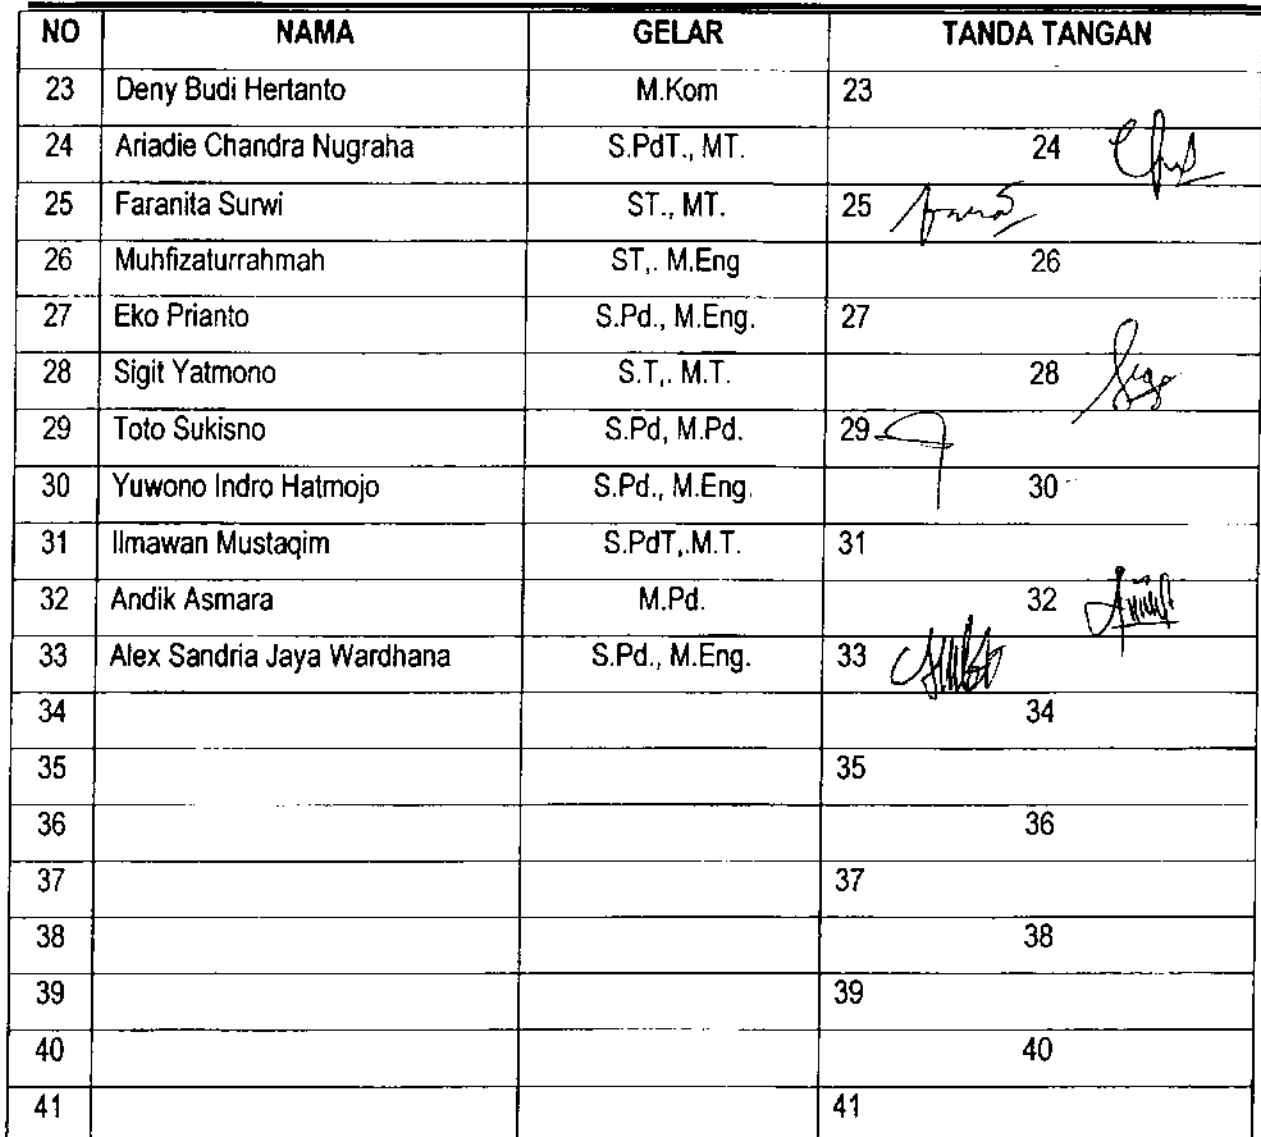 NO NAMA GELAR TANDA TANGAN
23 Deny Budi Hertanto M.Kom 23
24 Ariadie Chandra Nugraha S.PdT., MT. 24
25 Faranita Surwi ST., MT. 25
26 Muhfizaturrahmah ST,. M.Eng 26
27 Eko Prianto S.Pd., M.Eng. 27
28 Sigit Yatmono S.T,. M.T. 28
29 Toto Sukisno S.Pd, M.Pd. 29
30 Yuwono Indro Hatmojo S.Pd., M.Eng. 30
31 Ilmawan Mustaqim S.PdT,.M.T. 31
32 Andik Asmara M.Pd. 32
33 Alex Sandria Jaya Wardhana S.Pd., M.Eng. 33
34 34
35 35
36 36
37 37
38 38
39 39
40 40
41 41